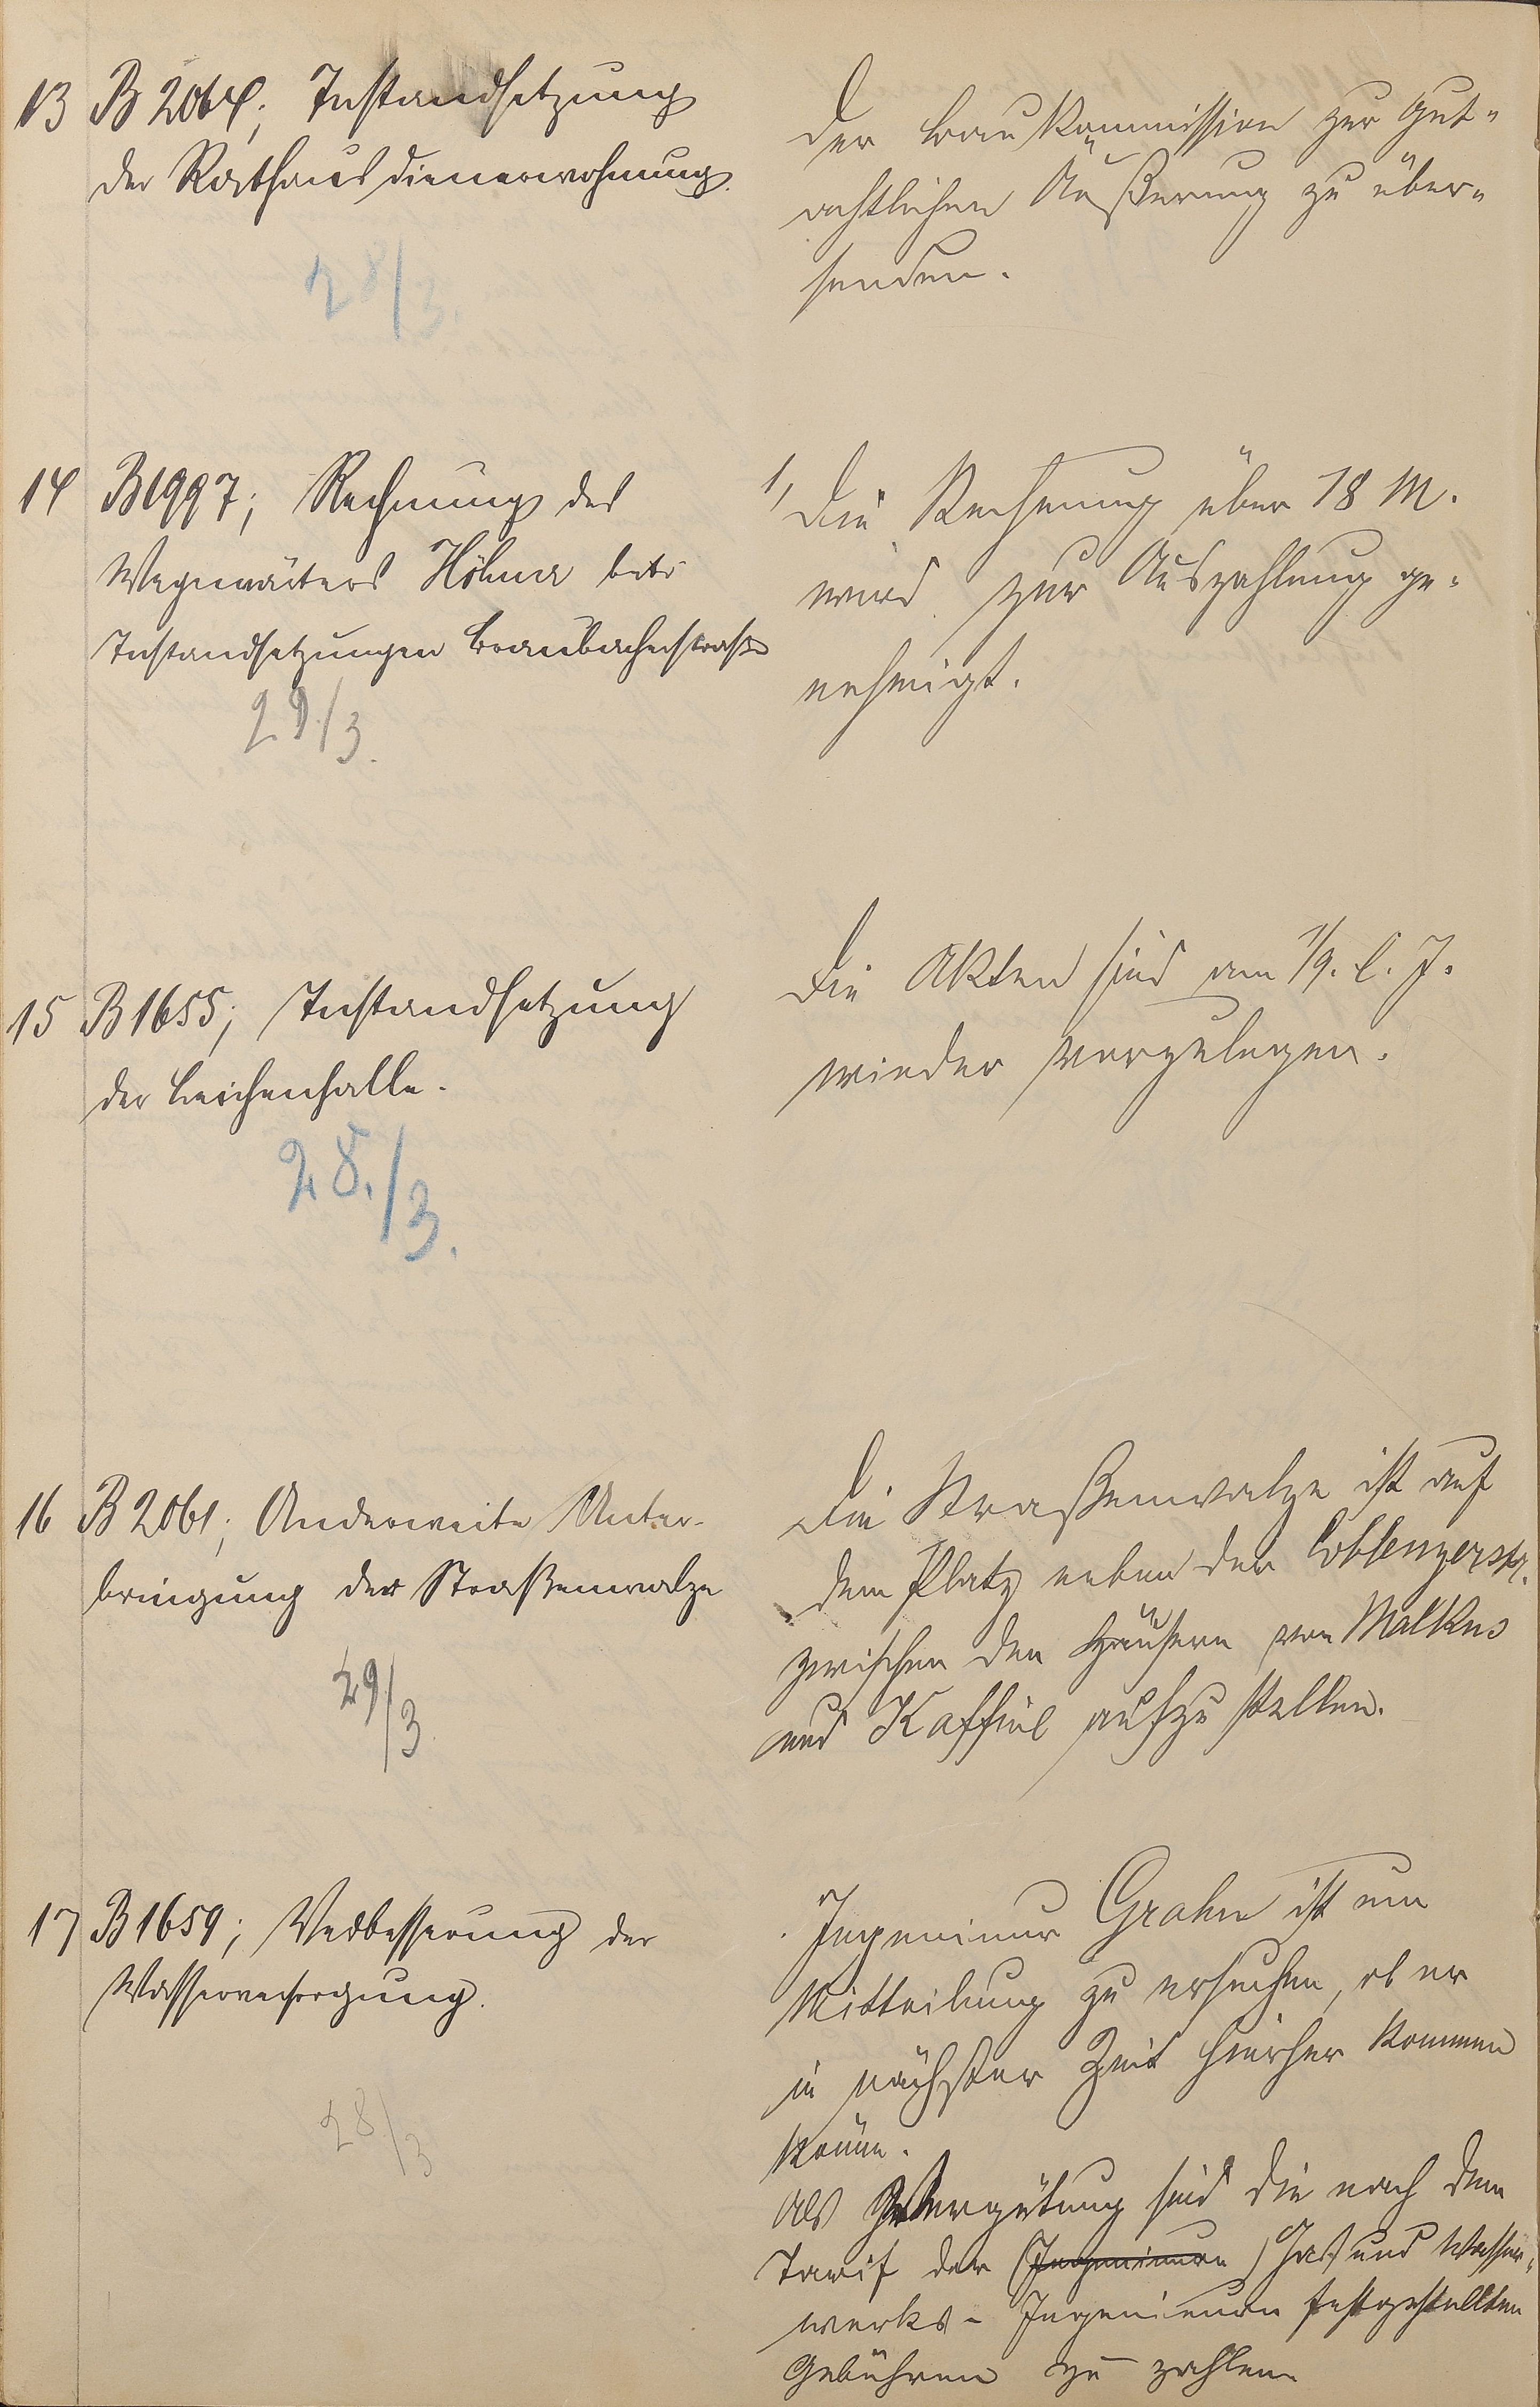 13 B 2064; Instandsetzung
der Rathausdienerwohnung.
28/3.
Der Baukommission zur gut-
achtlichen Äußerung zu über-
senden.
14 B 1997; Rechnung des
Wegewärters Höhne betr.
Instandsetzungen Braubacherstraße
29./3.
1, Die Rechnung über 18 M.
wird zur Auszahlung ge-
nehmigt.
15 B 1655; Instandsetzung
der Leichenhalle.
28./3.
Die Akten sind am 1/9. l. J.
wieder vorzulegen.
16 B 2061; Anderweite Unter-
bringung der Straßenwalze
29/3
Die Straßenwalze ist auf
dem Platz neben der Coblenzerstr.
zwischen den Häusern von Malkus
und Kaffine aufzustellen.
17 B 1659; Verbesserung der
Wasserversorgung.
28/3
Ingenieur Grahn ist um
Mitteilung zu ersuchen, ob er
in nächster Zeit hierher kommen
könne.
Als Vergütung sind die nach dem
Tarif der (Ingenieure) Gas und Wasser-
werks-Ingenieure festgestellten
Gebühren zu zahlen.